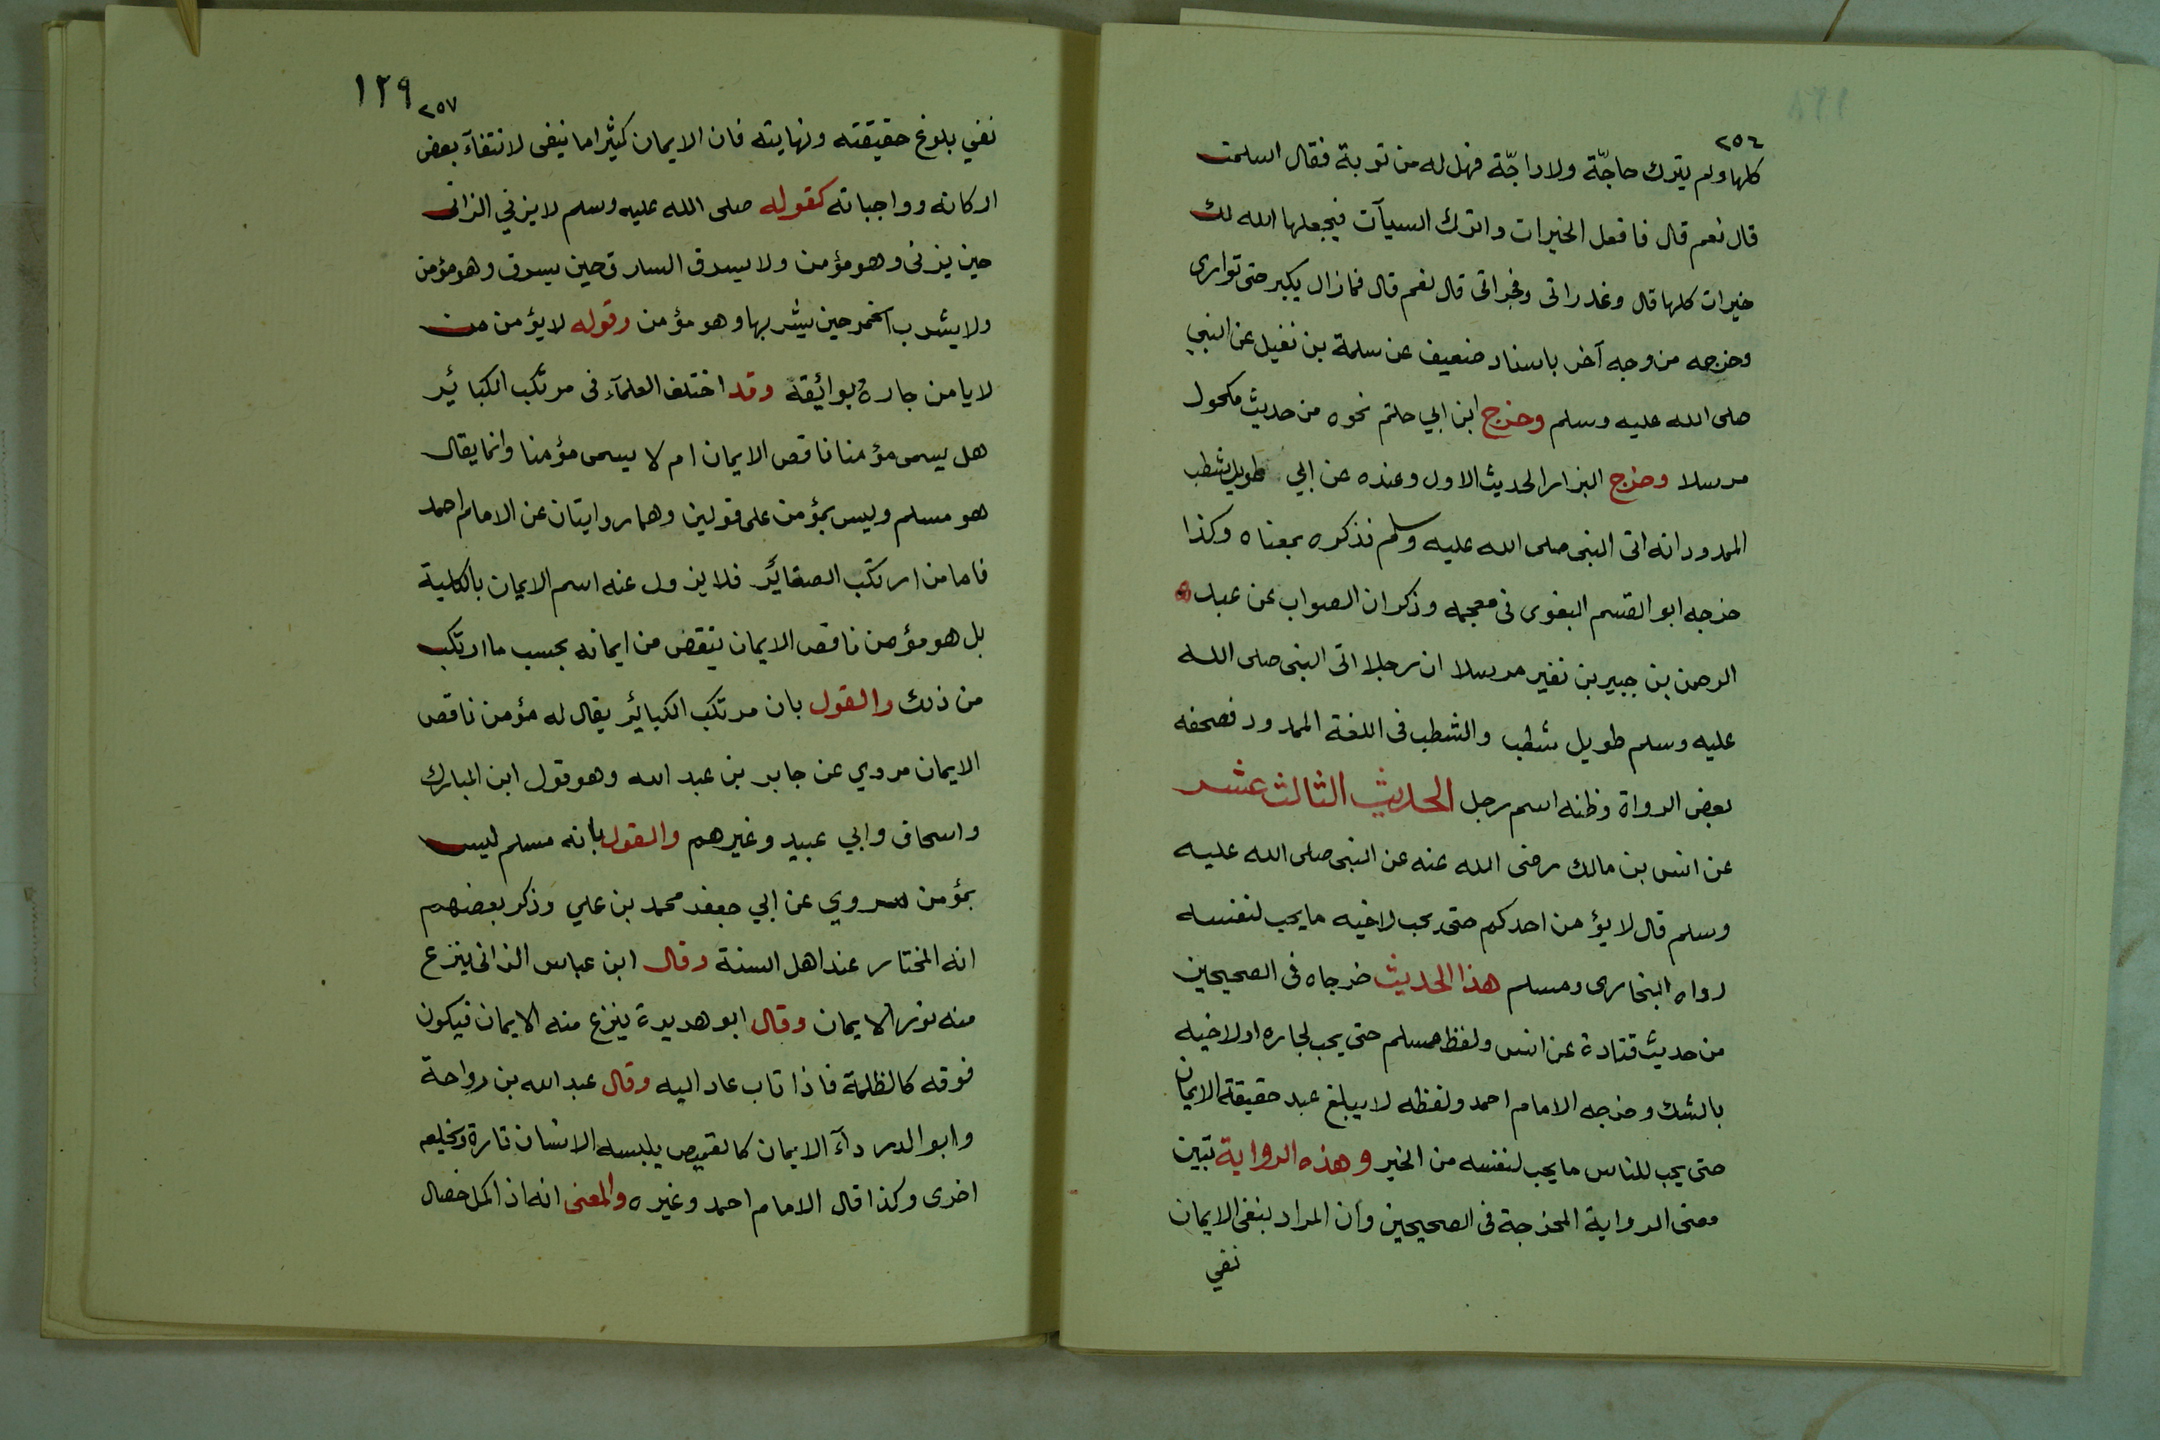 ٢٥٦
كلها ولم يترك حاجّة ولا داجّة فهل له من توبة فقال اسلمت
قال نعم قال فافعل الخيرات واترك السيآت فيجعلها الله لك
خيرات كلها قال وغدراتى وفجراتى قال نعم قال فمازال يكبر حتى توارى
وخرجه من وجه آخر باسناد ضعيف عن سلمة بن نفيل عن النبي
صلى الله عليه وسلم وخرج ابن ابي حاتم نحوه من حديث مكحول
مرسلا وخرج البزار الحديث الاول وعنده عن ابي طويل شطب
الممدود انه اتى النبى صلى الله عليه وسلم فذكره بمعناه وكذا
خرجه ابو القسم البغوى فى معجمه وذكر ان الصواب عن عبد
الرحمن بن جبير بن نفير مرسلا ان رجلا اتى النبى صلى الله
عليه وسلم طويل شطب والشطب فى اللغة الممدود فصحفه
بعض الرواة وظنه اسم رجل الحديث الثالث عشر
عن انس بن مالك رضى الله عنه عن النبى صلى الله عليه
وسلم قال لا يؤمن احدكم حتى يحب لاخيه ما يحب لنفسه
رواه البخارى ومسلم هذا الحديث خرجاه فى الصحيحين
من حديث قتادة عن انس ولفظ مسلم حتى يحب لجاره او لاخيه
بالشك وخرجه الامام احمد ولفظه لا يبلغ عبد حقيقة الايمان
حتى يحب للناس ما يحب لنفسه من الخير وهذه الرواية تبين
معنى الرواية المخرجة فى الصحيحين وان المراد بنفى الايمان
نفي
١٢٩
٢٥٧
نفي بلوغ حقيقته ونهايته فان الايمان كثيرا ما ينفى لانتفآء بعض
اركانه وواجباته كقوله صلى الله عليه وسلم لا يزني الزانى
حين يزنى وهو مؤمن ولا يسرق السارق حين يسرق وهو مؤمن
ولا يشرب الخمر حين يشربها وهو مؤمن وقوله لا يؤمن من
لا يامن جاره بوائقه وقد اختلف العلمآء فى مرتكب الكبائر
هل يسمى مؤمنا ناقص الايمان ام لا يسمى مؤمنا وانما يقال
هو مسلم وليس بمؤمن على قولين وهما روايتان عن الامام احمد
فاما من ارتكب الصغائر فلا يزول عنه اسم الايمان بالكلية
بل هو مؤمن ناقص الايمان ينقض من ايمانه بحسب ما ارتكب
من ذلك والقول بان مرتكب الكبائر يقال له مؤمن ناقص
الايمان مروي عن جابر بن عبد الله وهو قول ابن المبارك
واسحاق وابي عبيد وغيرهم والقول بانه مسلم ليس
بمؤمن مروي عن ابي جعفر محمد بن علي وذكر بعضهم
انه المختار عند اهل السنة وقال ابن عباس الزانى ينزع
منه نور الايمان وقال ابو هريرة ينزع منه الايمان فيكون
فوقه كالظلمة فاذا تاب عاد اليه وقال عبد الله بن رواحة
وابو الدردآء الايمان كالقميص يلبسه الانسان تارة ويخلعه
اخرى وكذا قال الامام احمد وغيره والمعنى انه اذا كمل خصال